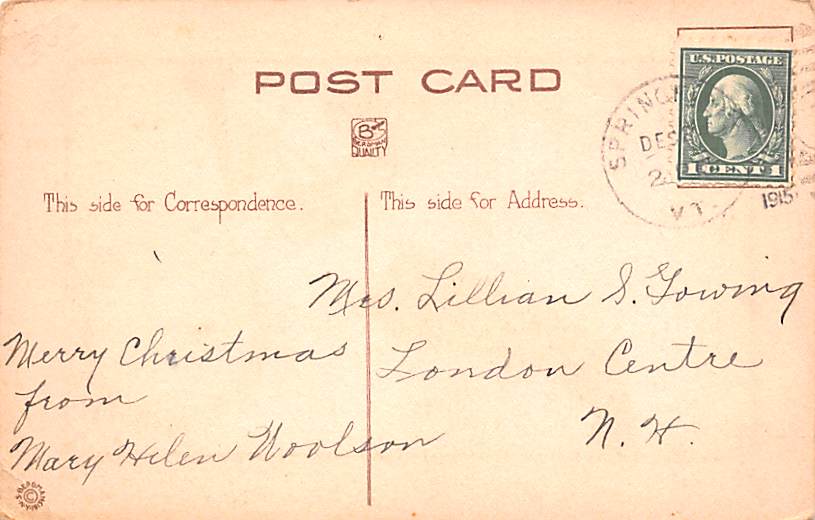 POST CARD
B
BERGMAN
QUALITY
U.S. POSTAGE
1 CENT 1
SPRING
DEC
2
VT.
1915
This side for Correspondence.
This side for Address.
Mrs. Lillian S. Gowing
London Centre
N. H.
Merry Christmas
from
Mary Hilen Woolson